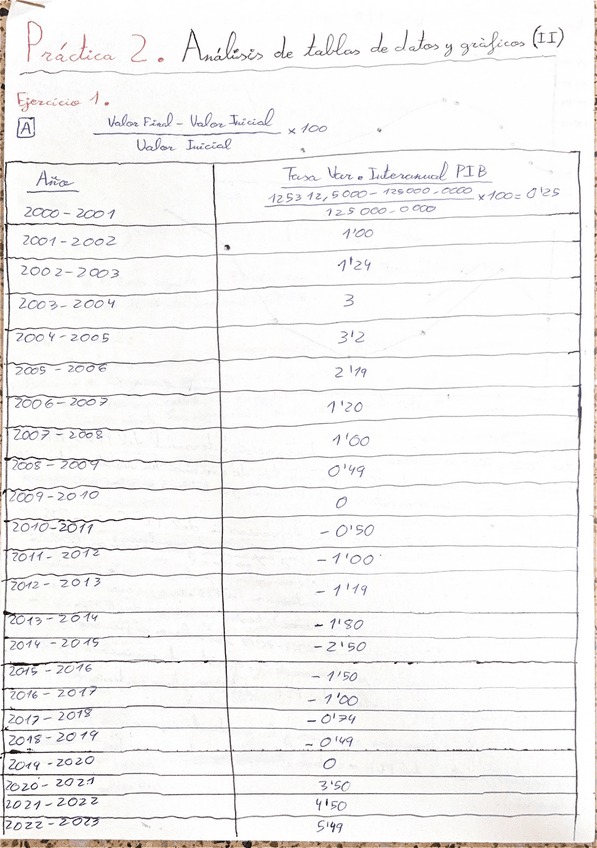 Práctica 2. Análisis de tablas de datos y gràficos (II)
Ejercicio 1.
A
Valor Final - Valor Inicial
Valor Inicial
x 100
Año
Tasa Var. Interanual PIB
2000-2001
125312,5000 - 125000-0000
125000-0000
x100= 0'25
2001-2002 1'00
2002-2003 1'24
2003-2004 3
2004-2005 3'2
2005-2006 2'19
2006-2007 1'20
2007-2008 1'00
2008-2009 0'49
2009-2010 0
2010-2011 - 0'50
2011-2012 - 1'00
2012-2013 - 1'19
2013-2014 - 1'80
2014-2015 - 2'50
2015-2016 - 1'50
2016-2017 - 1'00
2017-2018 - 0'74
2018-2019 - 0'49
2019-2020 0
2020-2021 3'50
2021-2022 4'50
2022-2023 5'49